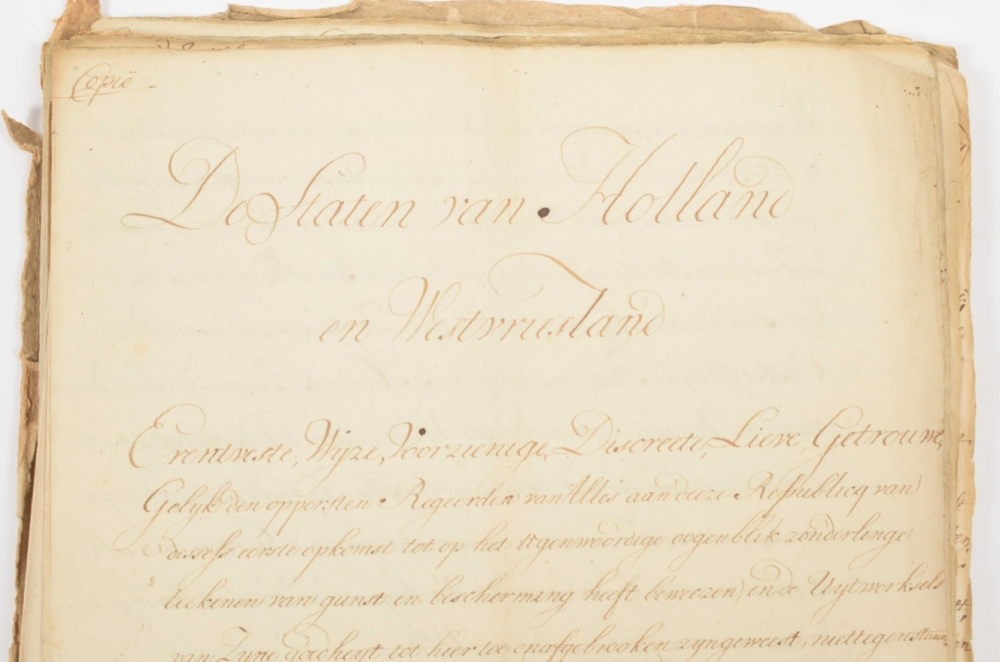 Copie
De Staten van Holland
en Westvriesland
Erentveste, Wyze, Voorzienige, Discreete, Lieve, Getrouwe,
Gelyk den oppersten Regeerder van Alles aan deeze Republicq van
desselfs eerste opkomst tot op het tegenwoordige oogenblik zonderlinge
tiekenen van gunst en bescherming heeft beweezen, en de Uytwerksels
van Zyne goedheyt tot hier toe onafgebrooken zyn geweest, niettegenstaan